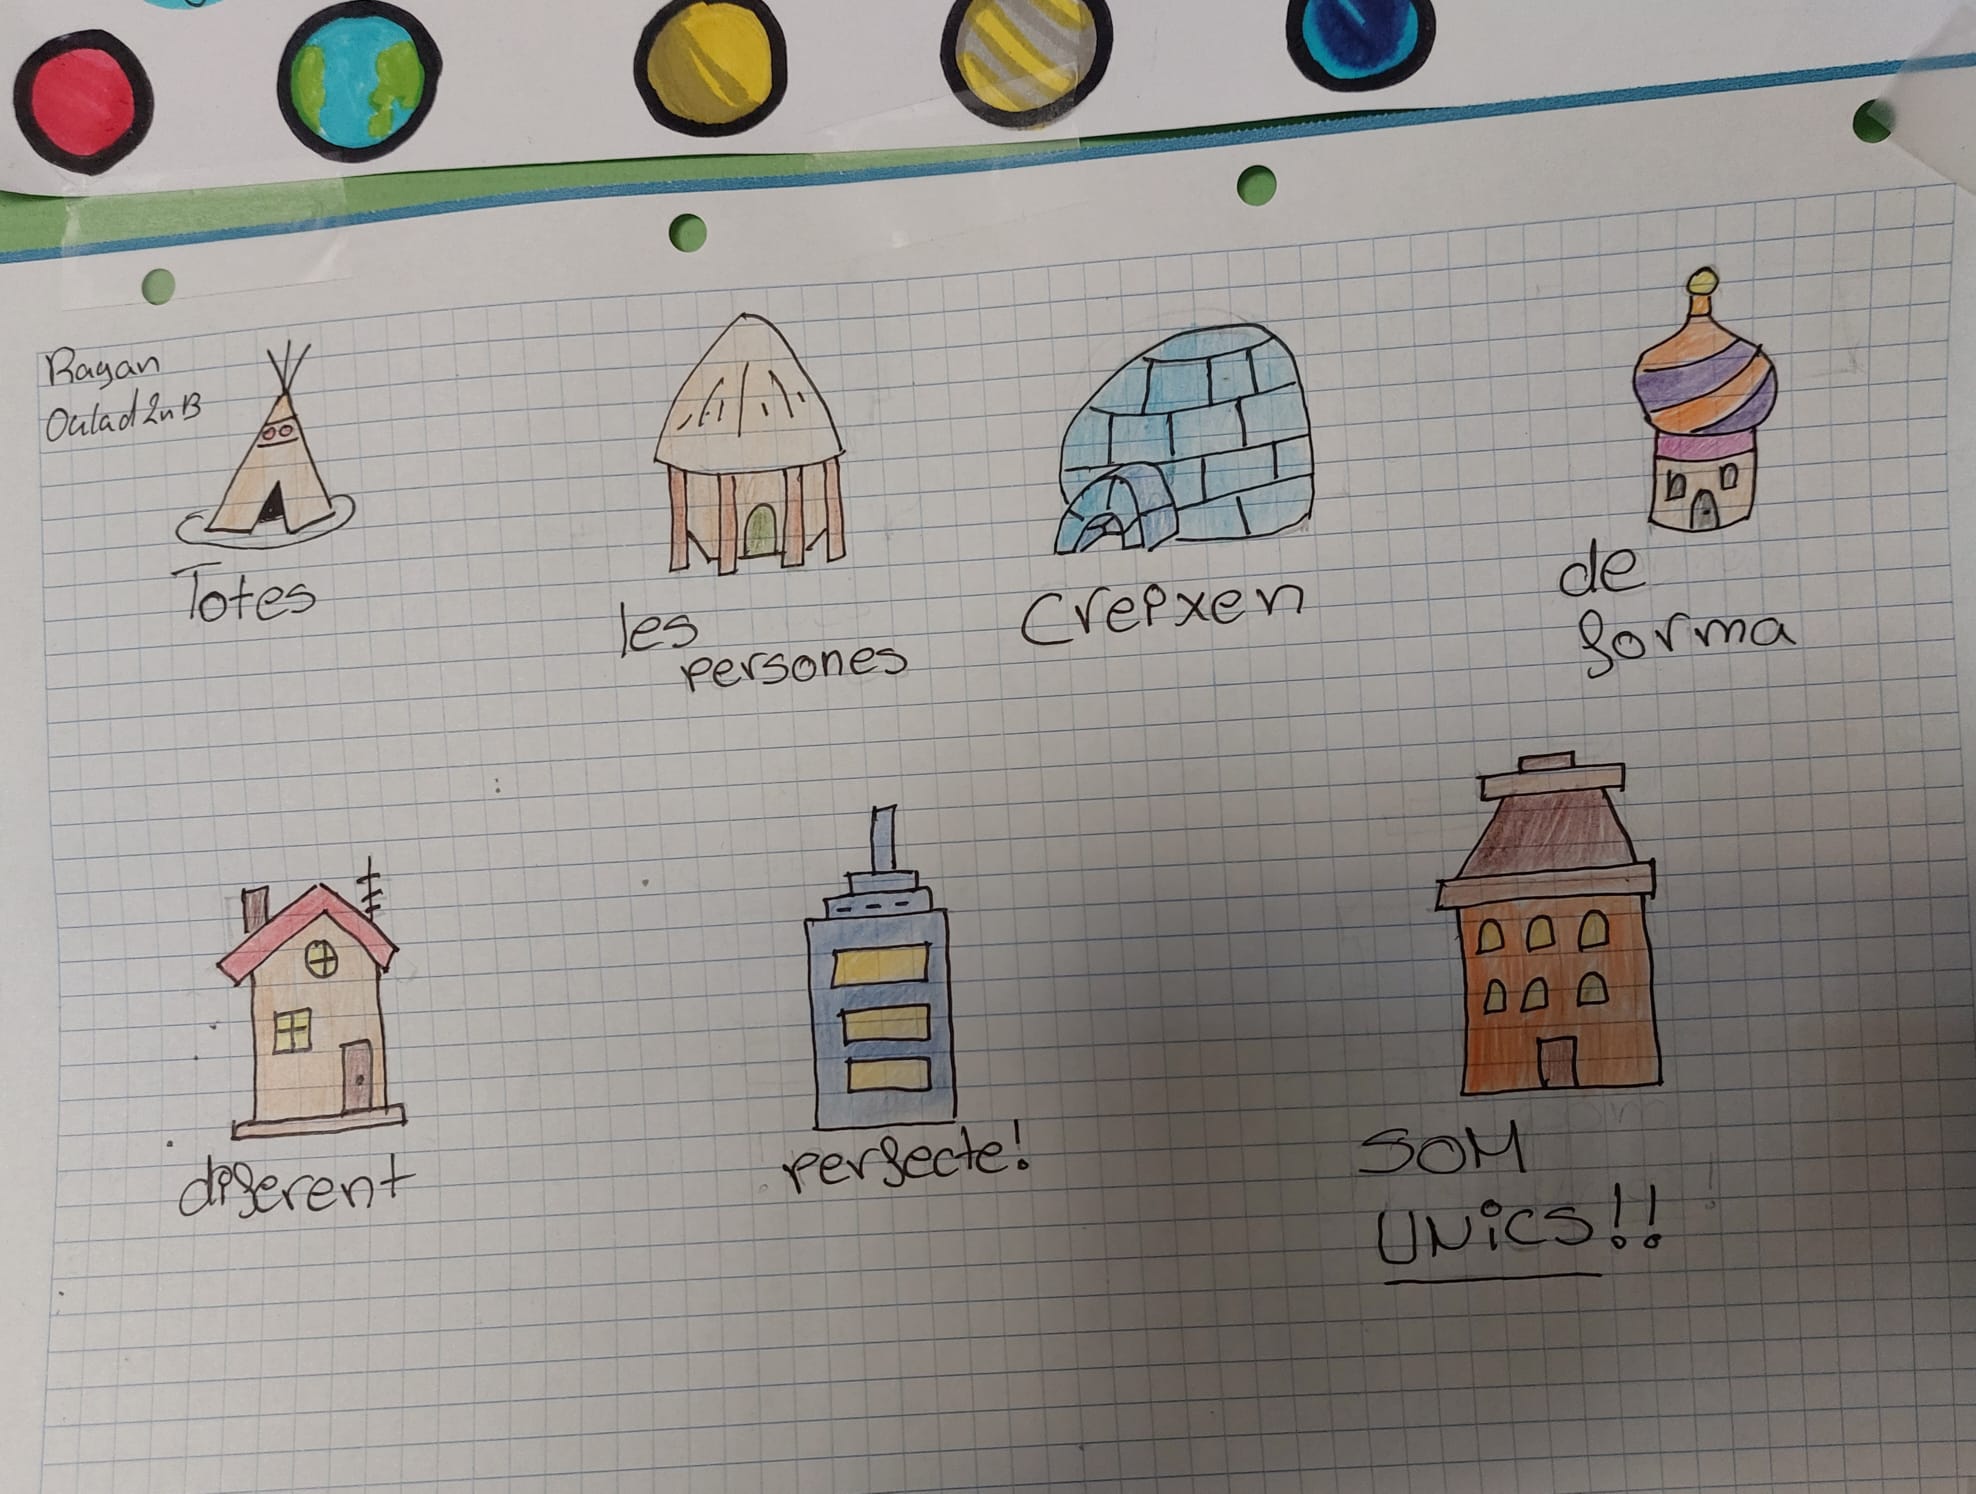 Rayan
Oulad 2n B
Totes
les
persones
Creixen
de
forma
diferent
perfecte!
SOM
UNiCS!!